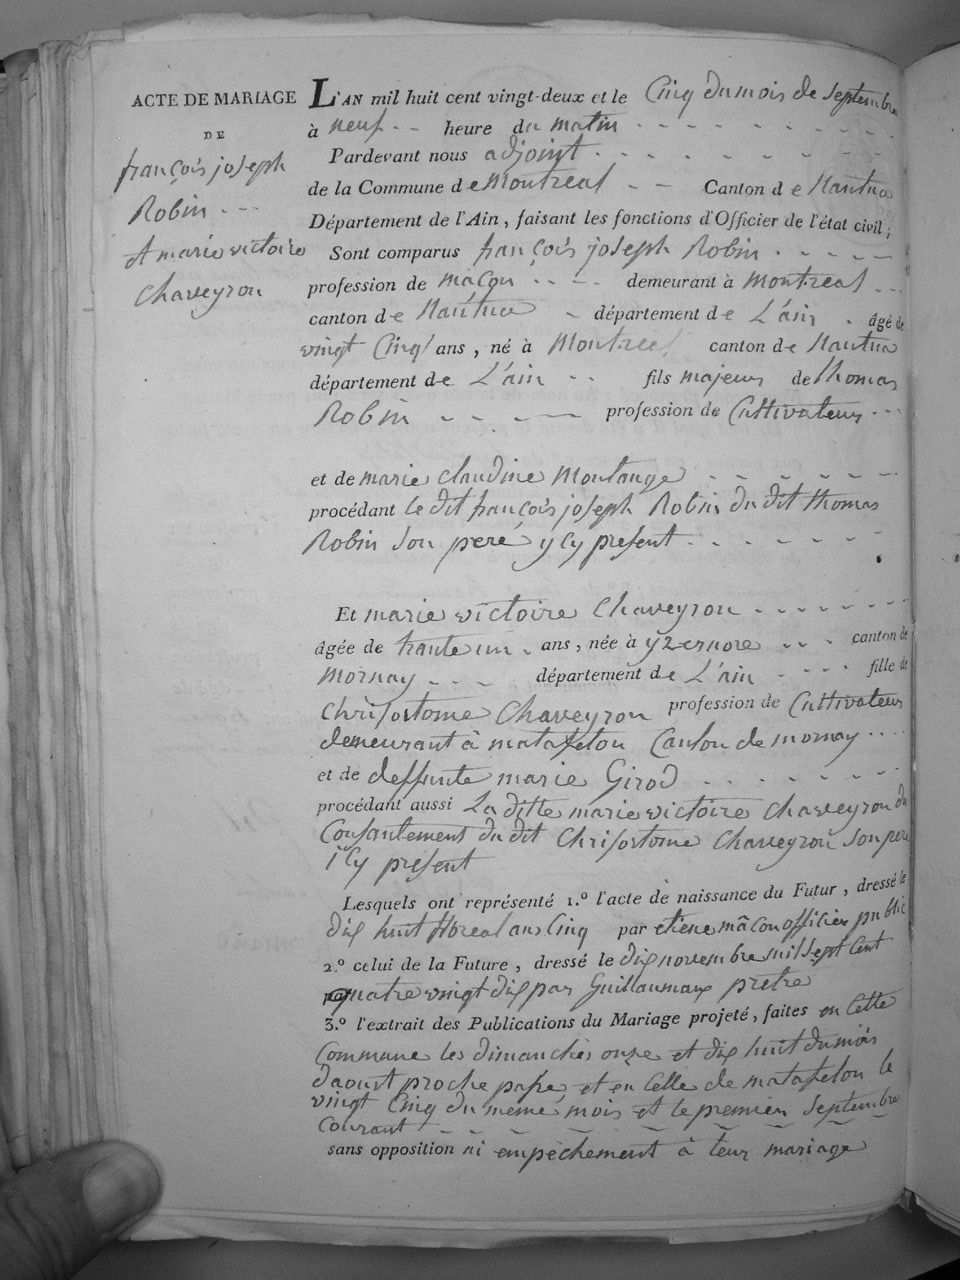 ACTE DE MARIAGE
DE
françois joseph
Robin
et marie victoire
Chaveyron
L'AN mil huit cent vingt-deux et le Cinq du mois de Septembre
à neuf heure du matin
Pardevant nous adjoint
de la Commune de Montreal Canton de Nantua
Département de l'Ain, faisant les fonctions d'Officier de l'état civil;
Sont comparus françois joseph Robin
profession de maçon demeurant à Montreal
canton de Nantua département de L'ain âgé de
vingt Cinq ans, né à Montreal canton de Nantua
département de L'ain fils majeur de thomas
Robin profession de Cultivateur
et de marie claudine Moulange
procédant le dit françois joseph Robin du dit thomas
Robin Son peré y cy present
Et marie victoire Chaveyron
âgée de trante un ans, née à yzernore canton de
Mornay département de L'ain fille de
Chrisostome Chaveyron profession de Cultivateur
demeurant à matafelon Canton de mornay
et de deffunte marie Girod
procédant aussi La ditte marie victoire chaveyron du
Consantement du dit Chrisostome Chaveyron son pere
i cy present
Lesquels ont représenté 1.º l'acte de naissance du Futur, dressé le
dix huit floreal an Cinq par etiene mâcon officier public
2.º celui de la Future, dressé le dix novembre mil Sept Cent
quatre vingt dix par Guillaumaux prêtre
3.º l'extrait des Publications du Mariage projeté, faites en Cette
Commune les dimanches onze et dix huit du mois
daout proche passé, et en Celle de matafelon le
vingt Cinq du meme mois et le premier Septembre
Courant
sans opposition ni empèchement à leur mariage